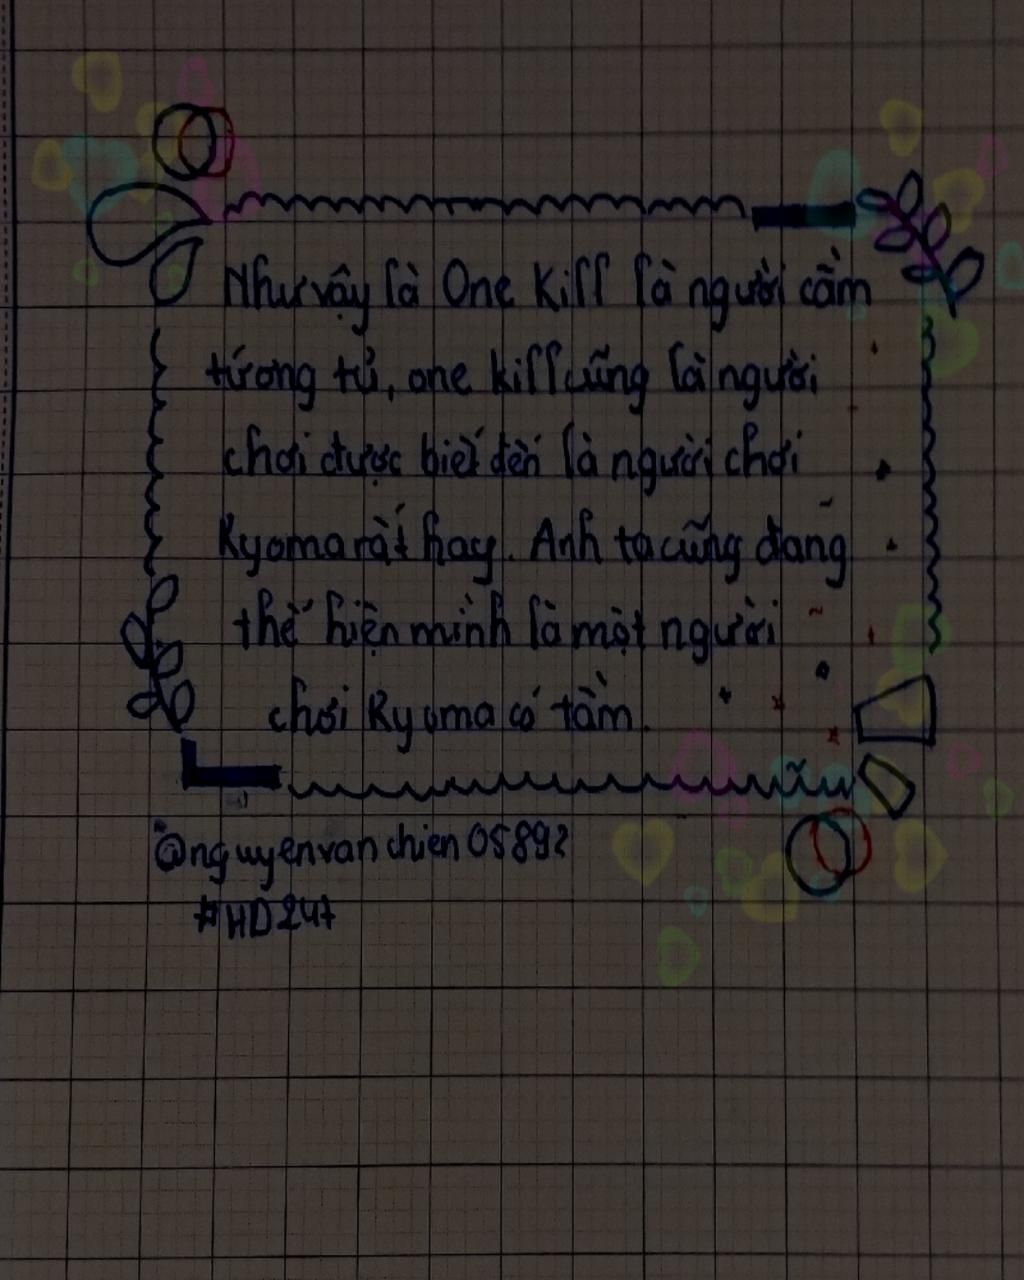 Như vậy là One Kill là người cầm
tướng tủ, one kill cũng là người
chơi được biết đến là người chơi
Kyoma rất hay. Anh ta cũng đang
thể hiện mình là một người
chơi Kyoma có tầm.
@nguyenvanchien05892
#HD247